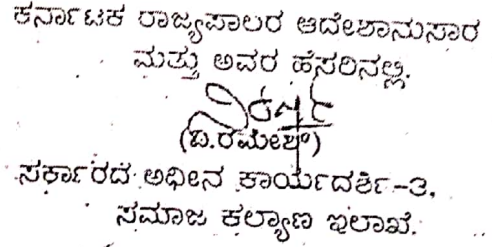 ಕರ್ನಾಟಕ ರಾಜ್ಯಪಾಲರ ಆದೇಶಾನುಸಾರ
ಮತ್ತು ಅವರ ಹೆಸರಿನಲ್ಲಿ.
(ಬಿ.ರಮೇಶ್)
ಸರ್ಕಾರದ ಅಧೀನ ಕಾರ್ಯದರ್ಶಿ-3,
ಸಮಾಜ ಕಲ್ಯಾಣ ಇಲಾಖೆ.